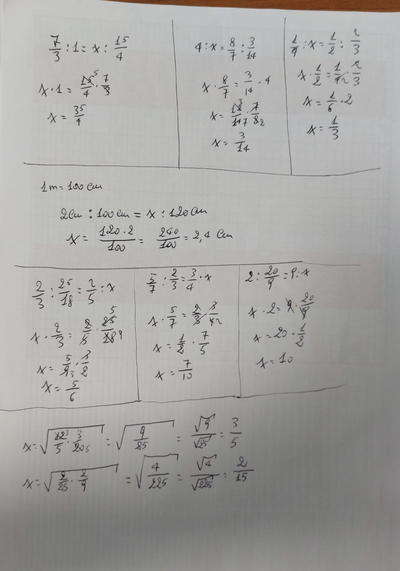 7/3 : 1 = x : 15/4
x · 1 = 15/4 · 7/3
x = 35/4
4 : x = 8/7 : 3/14
x · 8/7 = 3/14 · 4
x = 3/14
1/4 : x = 1/2 : 2/3
x · 1/2 = 1/4 · 2/3
x = 1/6 · 2
x = 1/3
1m = 100 cm
2cm : 100cm = x : 120cm
x = 120·2/100 = 240/100 = 2,4 cm
2/3 : 25/18 = 2/5 : x
x · 2/3 = 2/5 · 25/18
x = 5/9 · 3/2
x = 5/6
5/7 : 2/3 = 3/4 · x
x = 1/2 · 7/5
x = 7/10
2 : 20/9 = 9 : x
x · 2 = 9 · 20/9
x = 20 · 1/2
x = 10
x = √(12/5 · 3/20) = √(9/25) = √9/√25 = 3/5
x = √(2/25 · 2/9) = √(4/225) = √4/√225 = 2/15